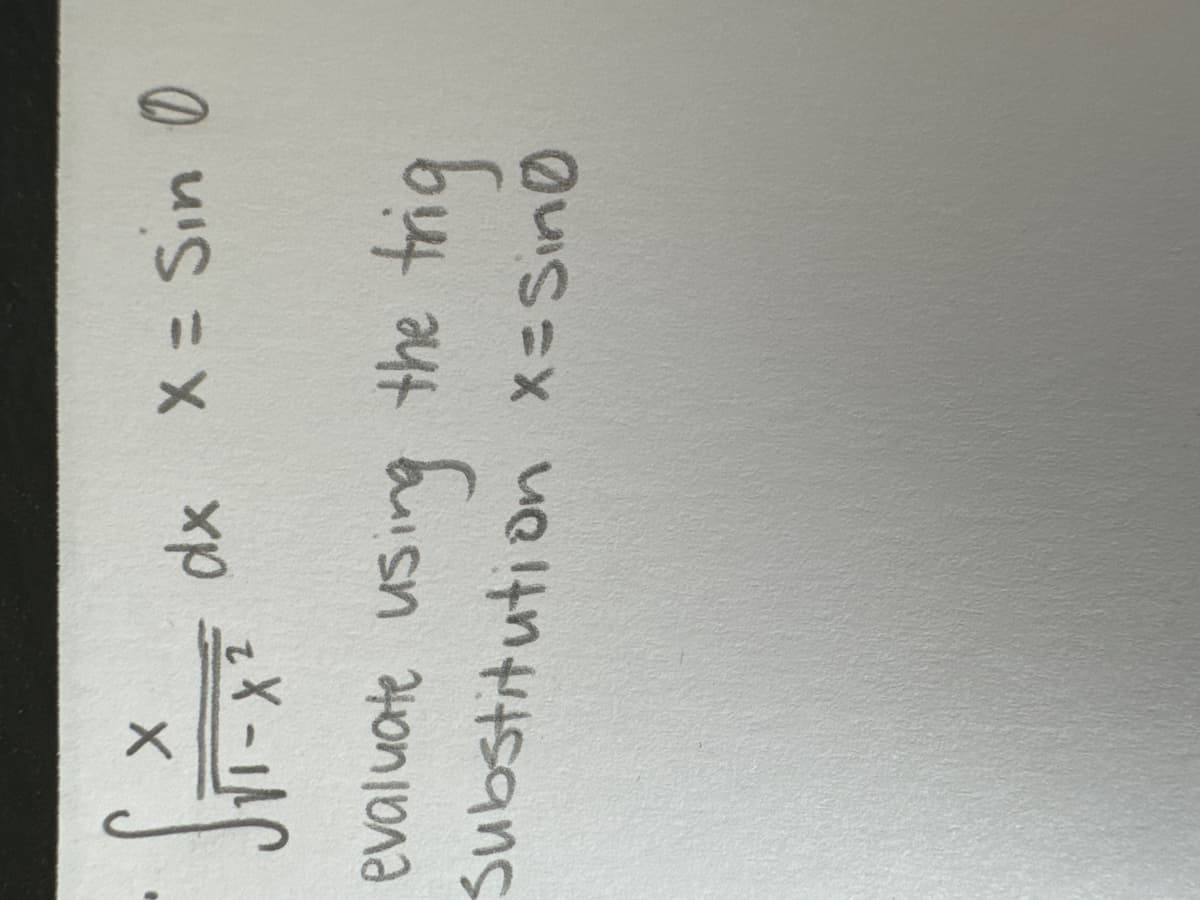 ∫ x/√(1-x²) dx x = sin θ
evaluate using the trig
substitution x = sinθ